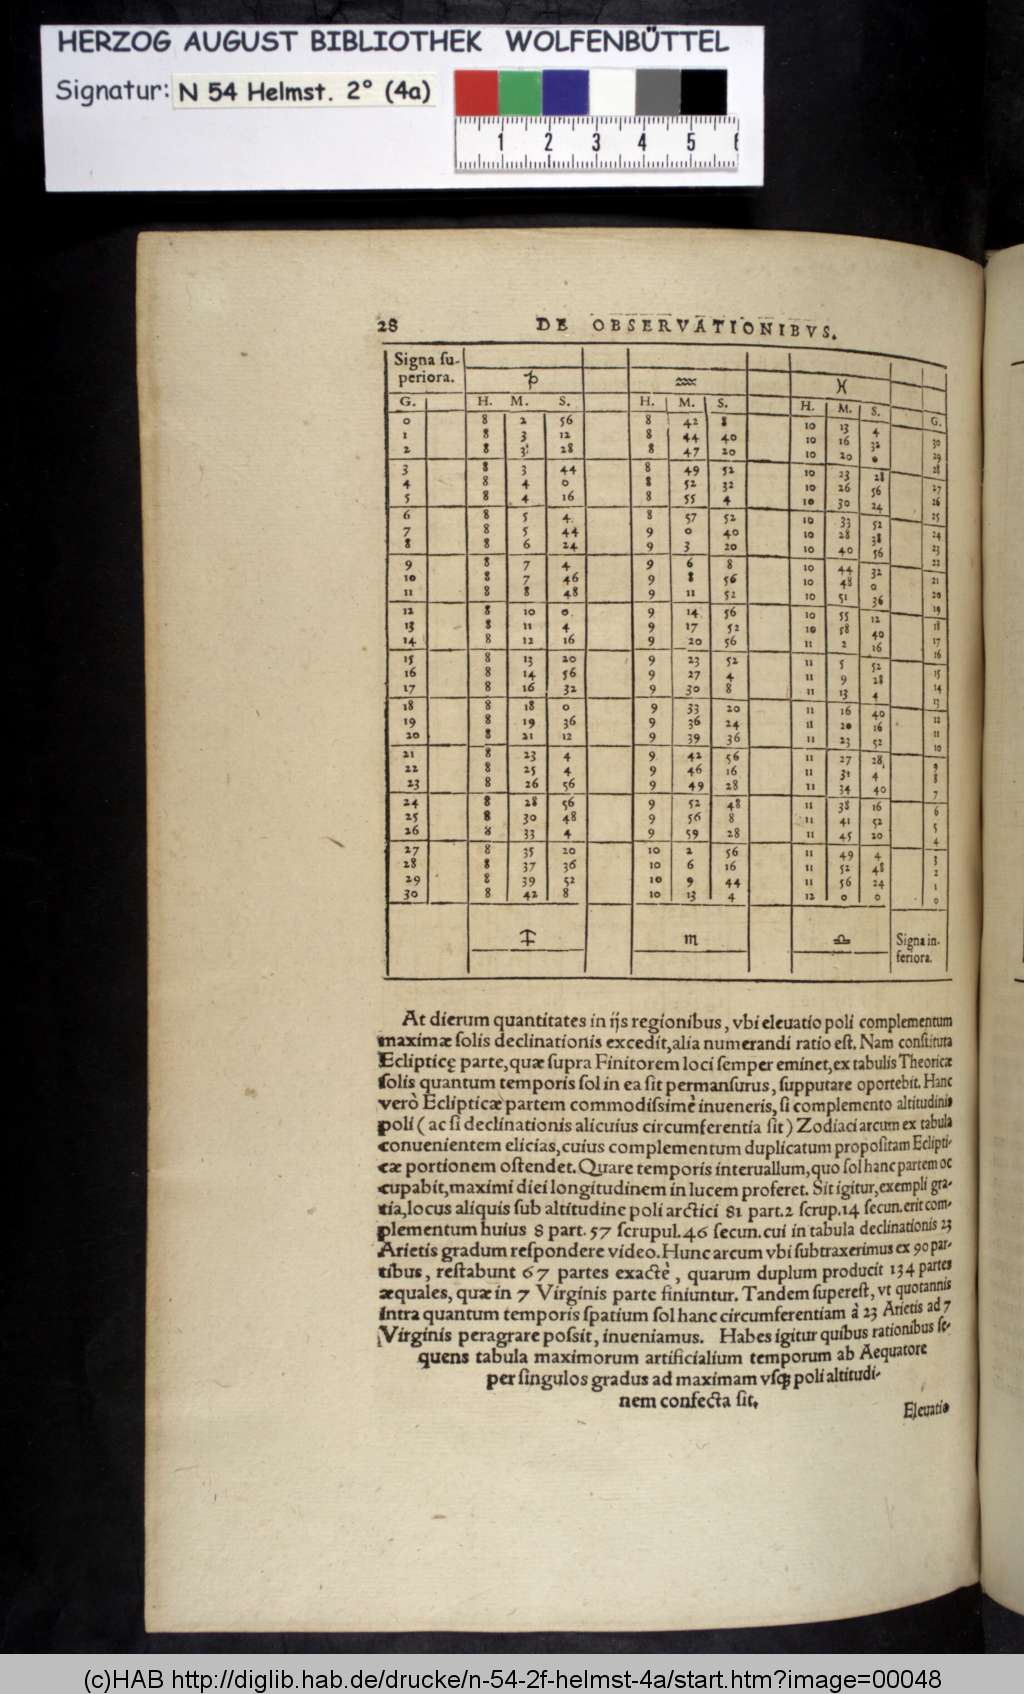 HERZOG AUGUST BIBLIOTHEK WOLFENBÜTTEL
Signatur: N 54 Helmst. 2° (4a)
1 2 3 4 5 6
28 DE OBSERVATIONIBVS.
Signa ſu-
periora. ♑ ♒ ♓
G. H. M. S. H. M. S. H. M. S. G.
0 8 2 56 8 42 8 10 13 4 30
1 8 3 12 8 44 40 10 16 32 29
2 8 3 28 8 47 20 10 20 0 28
3 8 3 44 8 49 52 10 23 28 27
4 8 4 0 8 52 32 10 26 56 26
5 8 4 16 8 55 4 10 30 24 25
6 8 5 4 8 57 52 10 33 52 24
7 8 5 44 9 0 40 10 28 38 23
8 8 6 24 9 3 20 10 40 56 22
9 8 7 4 9 6 8 10 44 32 21
10 8 7 46 9 8 56 10 48 0 20
11 8 8 48 9 11 52 10 51 36 19
12 8 10 0 9 14 56 10 55 12 18
13 8 11 4 9 17 52 10 58 40 17
14 8 12 16 9 20 56 11 2 16 16
15 8 13 20 9 23 52 11 5 52 15
16 8 14 56 9 27 4 11 9 28 14
17 8 16 32 9 30 8 11 13 4 13
18 8 18 0 9 33 20 11 16 40 12
19 8 19 36 9 36 24 11 20 16 11
20 8 21 12 9 39 36 11 23 52 10
21 8 23 4 9 42 56 11 27 28 9
22 8 25 4 9 46 16 11 31 4 8
23 8 26 56 9 49 28 11 34 40 7
24 8 28 56 9 52 48 11 38 16 6
25 8 30 48 9 56 8 11 41 52 5
26 8 33 4 9 59 28 11 45 20 4
27 8 35 20 10 2 56 11 49 4 3
28 8 37 36 10 6 16 11 52 48 2
29 8 39 52 10 9 44 11 56 24 1
30 8 42 8 10 13 4 12 0 0 0
♐ ♏ ♎ Signa in-
feriora.
At dierum quantitates in ijs regionibus, vbi eleuatio poli complementum
maximæ ſolis declinationis excedit, alia numerandi ratio eſt. Nam conſtituta
Eclipticę parte, quæ ſupra Finitorem loci ſemper eminet, ex tabulis Theoricæ
ſolis quantum temporis ſol in ea ſit permanſurus, ſupputare oportebit. Hanc
verò Eclipticæ partem commodiſsimè inueneris, ſi complemento altitudinis
poli ( ac ſi declinationis alicuius circumferentia ſit ) Zodiaci arcum ex tabula
conuenientem elicias, cuius complementum duplicatum propoſitam Eclipti-
cæ portionem oſtendet. Quare temporis interuallum, quo ſol hanc partem oc
cupabit, maximi diei longitudinem in lucem proferet. Sit igitur, exempli gra-
tia, locus aliquis ſub altitudine poli arctici 81 part. 2 ſcrup. 14 ſecun. erit com-
plementum huius 8 part. 57 ſcrupul. 46 ſecun. cui in tabula declinationis 23
Arietis gradum reſpondere video. Hunc arcum vbi ſubtraxerimus ex 90 par-
tibus, reſtabunt 67 partes exactè, quarum duplum producit 134 partes
æquales, quæ in 7 Virginis parte finiuntur. Tandem ſupereſt, vt quotannis
intra quantum temporis ſpatium ſol hanc circumferentiam à 23 Arietis ad 7
Virginis peragrare poſsit, inueniamus. Habes igitur quibus rationibus ſe-
quens tabula maximorum artificialium temporum ab Aequatore
per ſingulos gradus ad maximam vſq; poli altitudi-
nem confecta ſit.
Eleuatio
(c)HAB http://diglib.hab.de/drucke/n-54-2f-helmst-4a/start.htm?image=00048